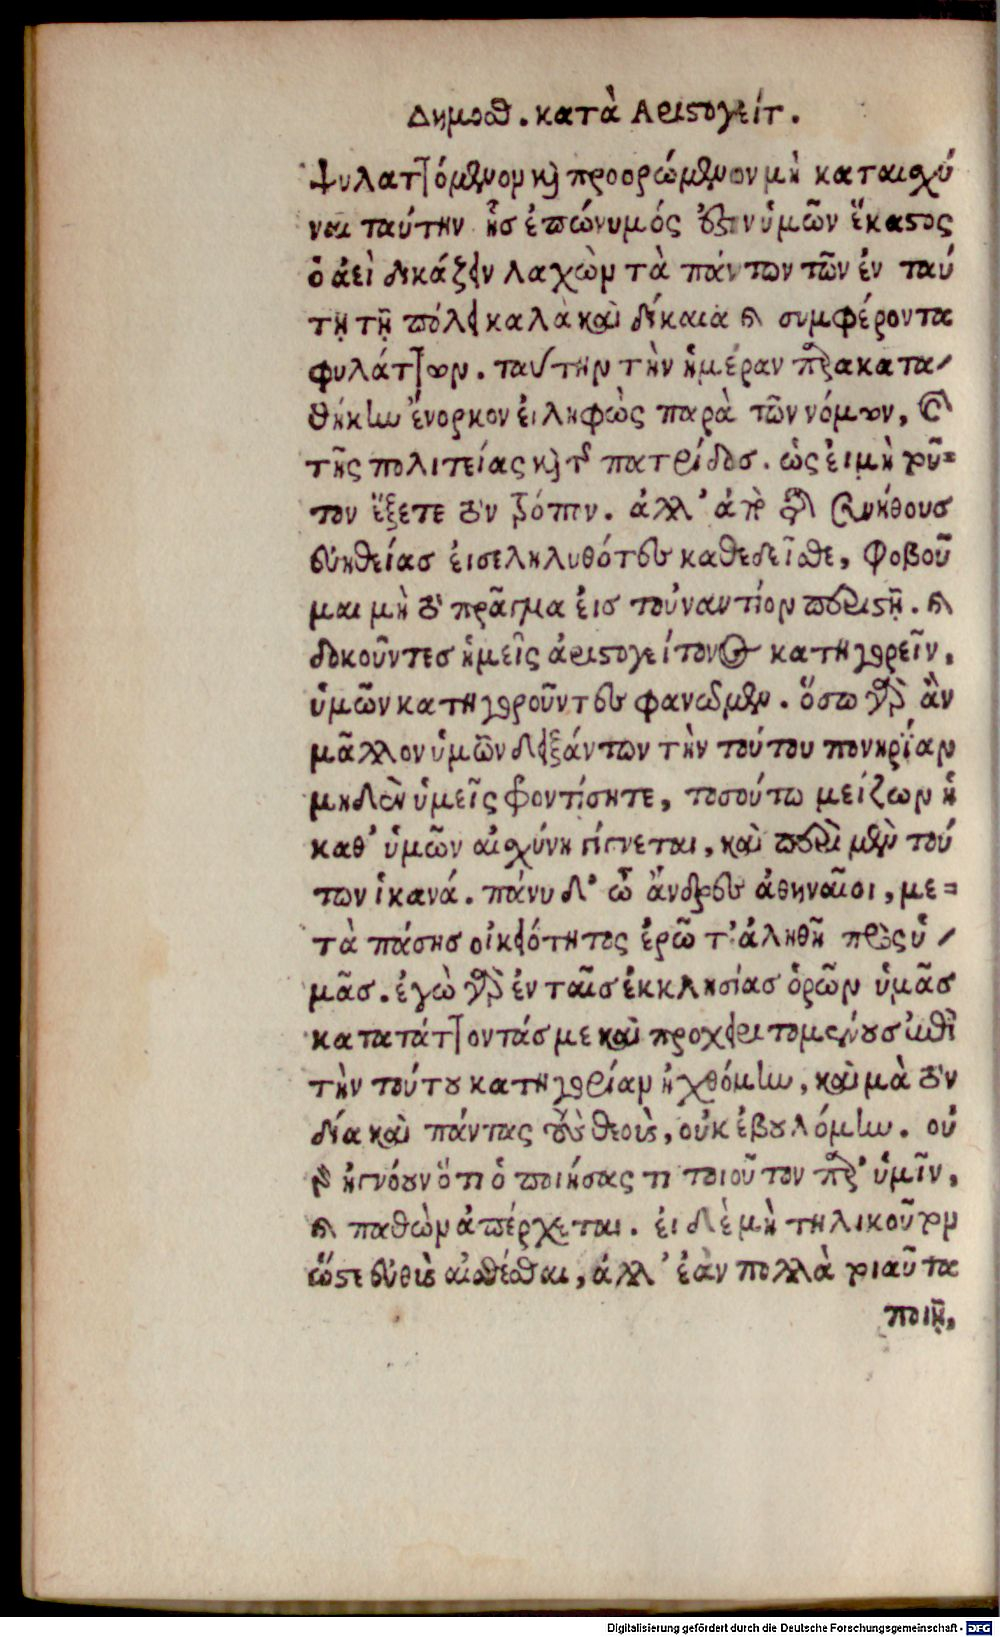 Δημοσθ. κατὰ Αριστογείτ.
φυλαττόμενον καὶ προορώμενον μὴ καταισχύ
ναι ταύτην ἧς ἐπώνυμός ἐστιν ὑμῶν ἕκαστος
ὁ ἀεὶ δικάζειν λαχὼν τὰ πάντων τῶν ἐν ταύ
τῃ τῇ πόλει καλὰ καὶ δίκαια καὶ συμφέροντα
φυλάττων. ταύτην τὴν ἡμέραν παρακατα-
θήκην ἔνορκον εἰληφὼς παρὰ τῶν νόμων, καὶ
τῆς πολιτείας καὶ τῆς πατρίδος. ὡς εἰ μὴ τοῦ-
τον ἕξετε τὸν τρόπον. ἀλλ' ἀπὸ τῆς συνήθους
εὐηθείας εἰσεληλυθότες καθεδεῖσθε, φοβοῦ
μαι μὴ τὸ πρᾶγμα εἰς τοὐναντίον περιστῇ. καὶ
δοκοῦντες ἡμεῖς ἀριστογείτονος κατηγορεῖν,
ὑμῶν κατηγοροῦντες φανῶμεν. ὅσω γὰρ ἂν
μᾶλλον ὑμῶν δειξάντων τὴν τούτου πονηρίαν
μηδὲν ὑμεῖς φροντίσητε, τοσούτω μείζων ἡ
καθ' ὑμῶν αἰσχύνη γίγνεται, καὶ περὶ μὲν τού
των ἱκανά. πάνυ δ' ὦ ἄνδρες ἀθηναῖοι, με-
τὰ πάσης οἰκειότητος ἐρῶ τ' ἀληθῆ πρὸς ὑ-
μᾶς. ἐγὼ γὰρ ἐν ταῖς ἐκκλησίας ὁρῶν ὑμᾶς
κατατάττοντάς με καὶ προχειριζομένους ἐπὶ
τὴν τούτου κατηγορίαν ἠχθόμην, καὶ μὰ τὸν
δία καὶ πάντας τοὺς θεοὺς, οὐκ ἐβουλόμην. οὐ
γὰρ ἠγνόουν ὅτι ὁ ποιήσας τι τοιοῦτον παρ' ὑμῖν,
καὶ παθὼν ἀπέρχεται. εἰ δὲ μὴ τηλικοῦτον
ὥστε εὐθὺς αἰσθέσθαι, ἀλλ' ἐὰν πολλὰ τοιαῦτα
ποιῇ,
Digitalisierung gefördert durch die Deutsche Forschungsgemeinschaft - DFG